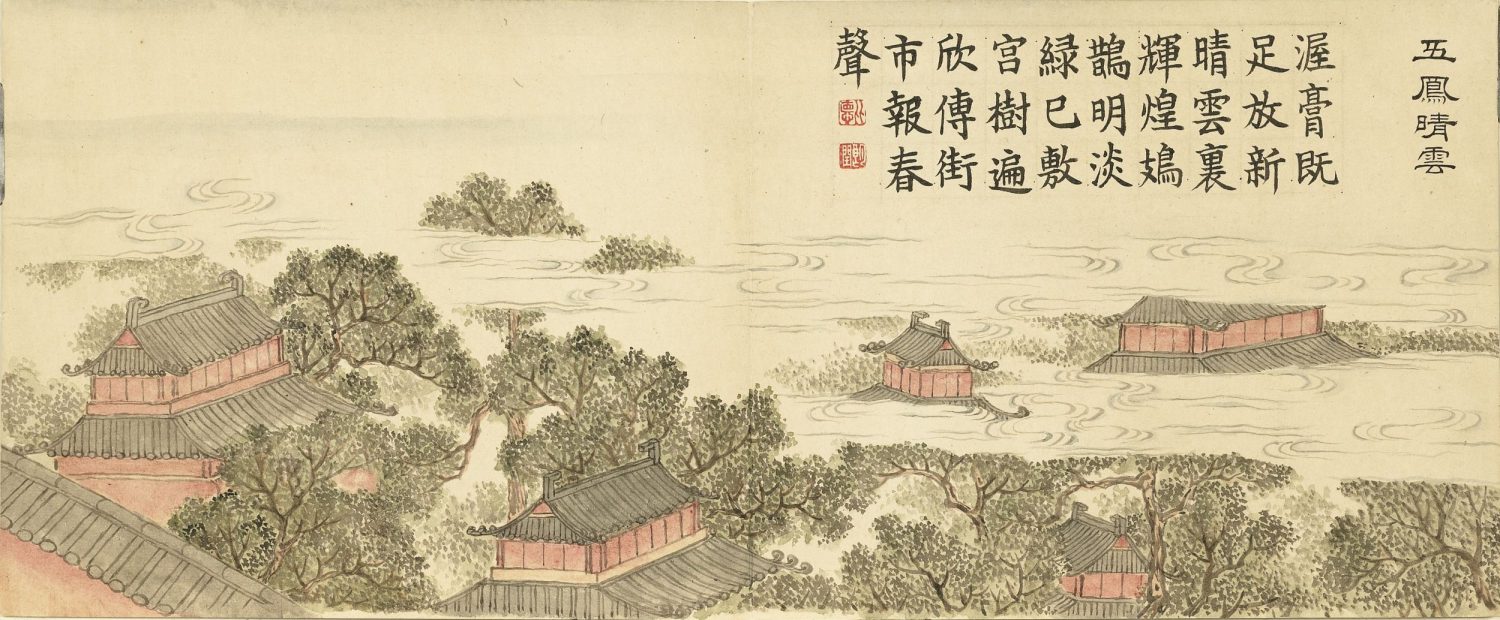 五鳳晴雲
渥膏既
足放新
晴雲裏
輝煌鳷
鵲明淡
緑已敷
宮樹遍
欣傳街
市報春
聲
比德
朗潤